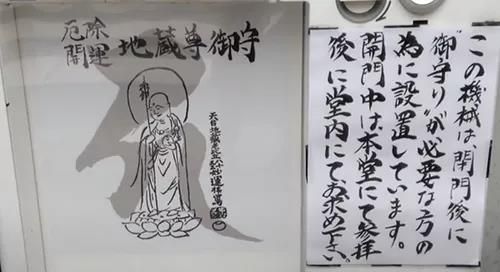 厄除
開運
地蔵尊御守
この機械は、閉門後に
"御守り"が必要な方の
為に設置しています。
開門中は本堂にて参拝
後に堂内にてお求め下さい。